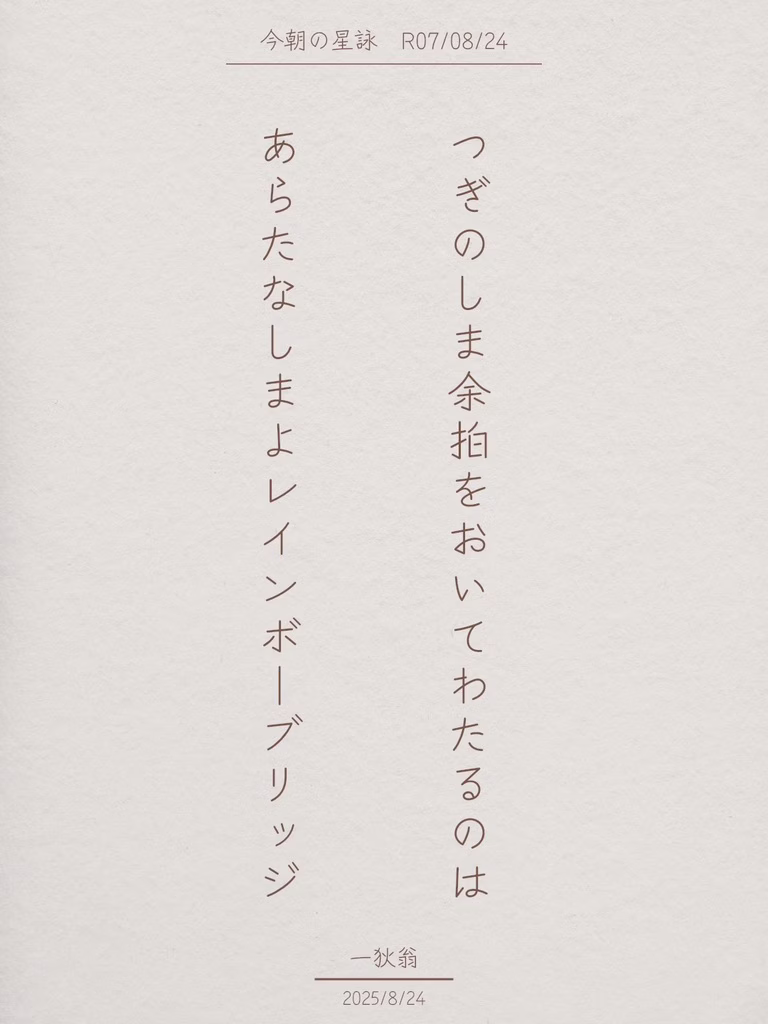 今朝の星詠　R07/08/24
つぎのしま余拍をおいてわたるのは
あらたなしまよレインボーブリッジ
一狄翁
2025/8/24